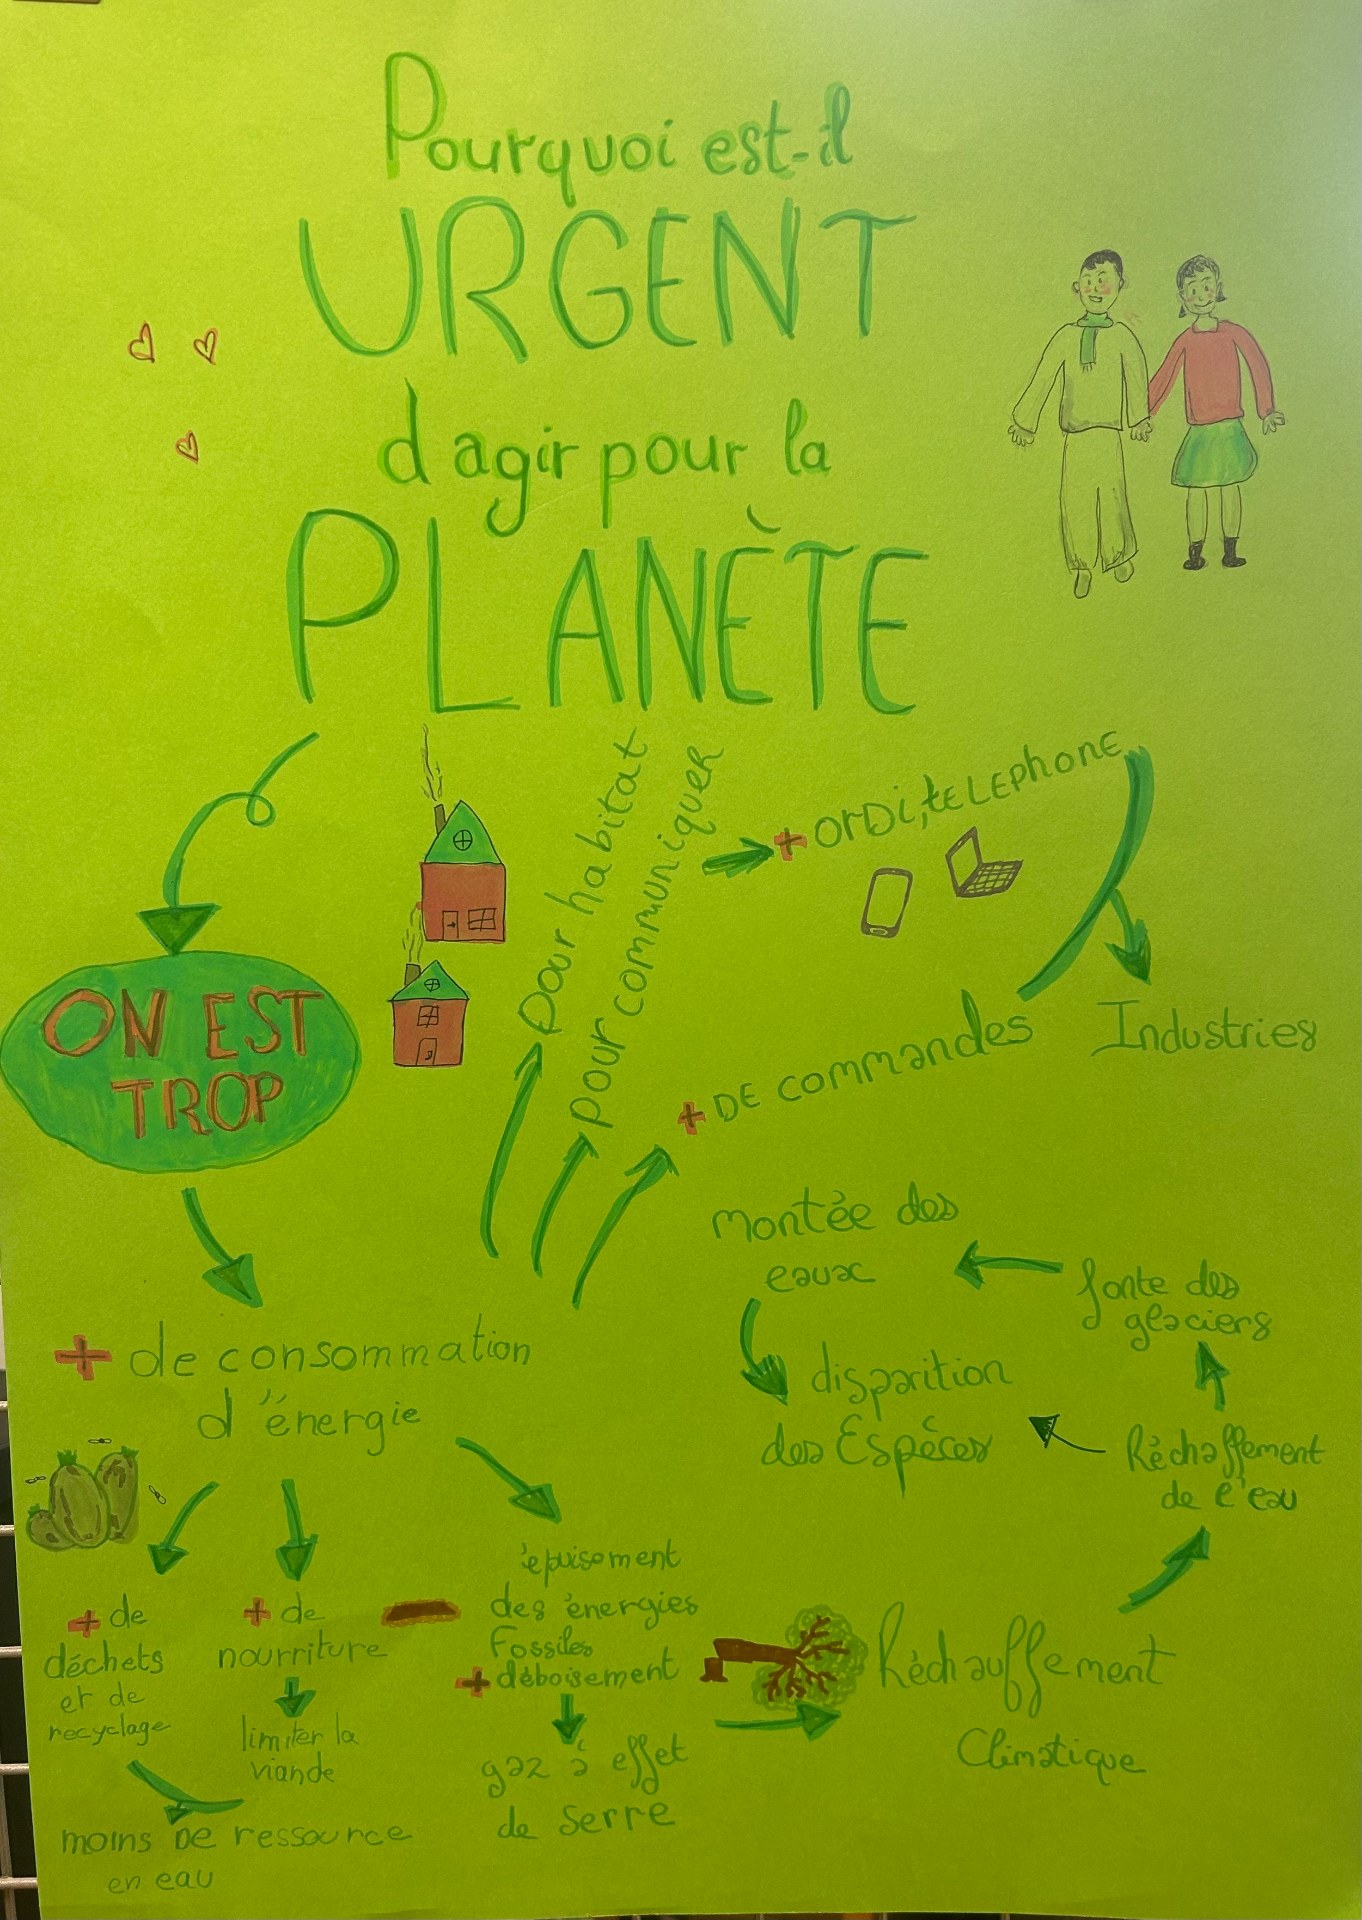 Pourquoi est-il
URGENT
d agir pour la
PLANÈTE
ON EST
TROP
pour habitat
pour communiquer
+ ORDi, tELEPhONE
+ DE commandes
Industries
+ de consommation
d'énergie
+ de
déchets
et de
recyclage
+ de
nourriture
limiter la
viande
moins DE ressource
en eau
épuisement
des énergies
Fossiles
+ déboisement
gaz à effet
de Serre
Réchauffement
Climatique
Réchaffement
de l'eau
fonte des
glaciers
montée des
eaux
disparition
des Espèces